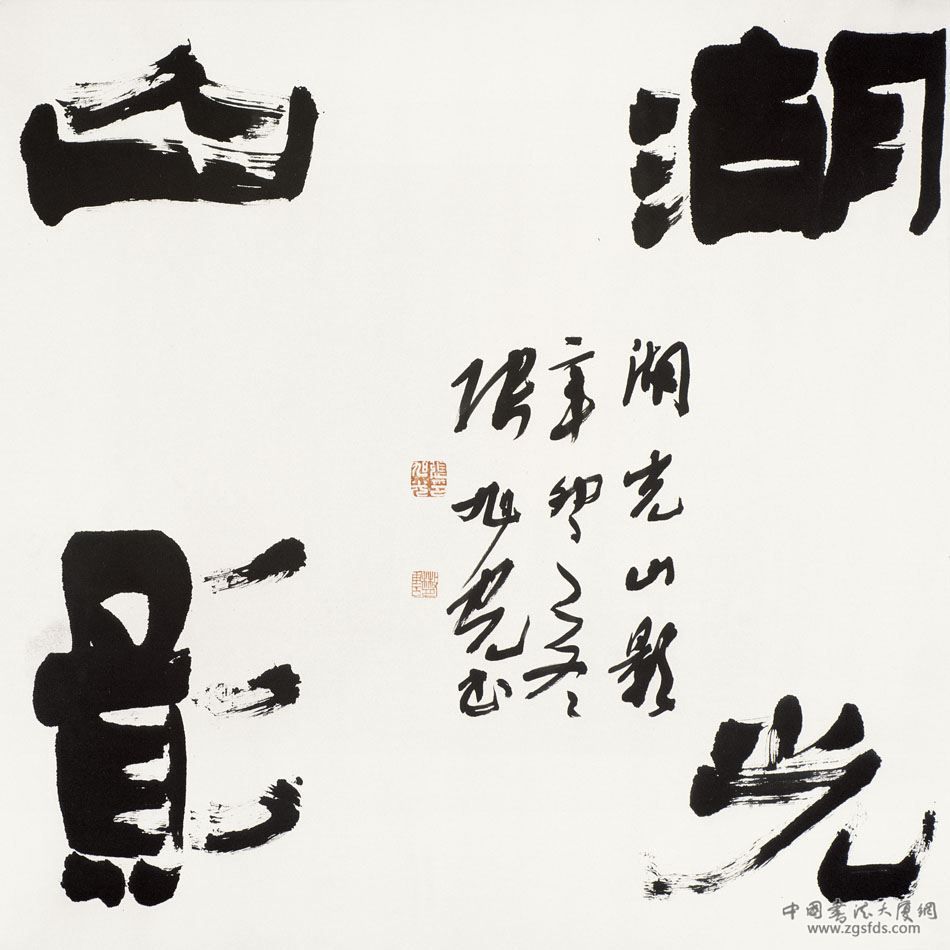 湖光
山影
湖光山影
辛卯之冬
張旭光書
中國書法大廈網
www.zgsfds.com